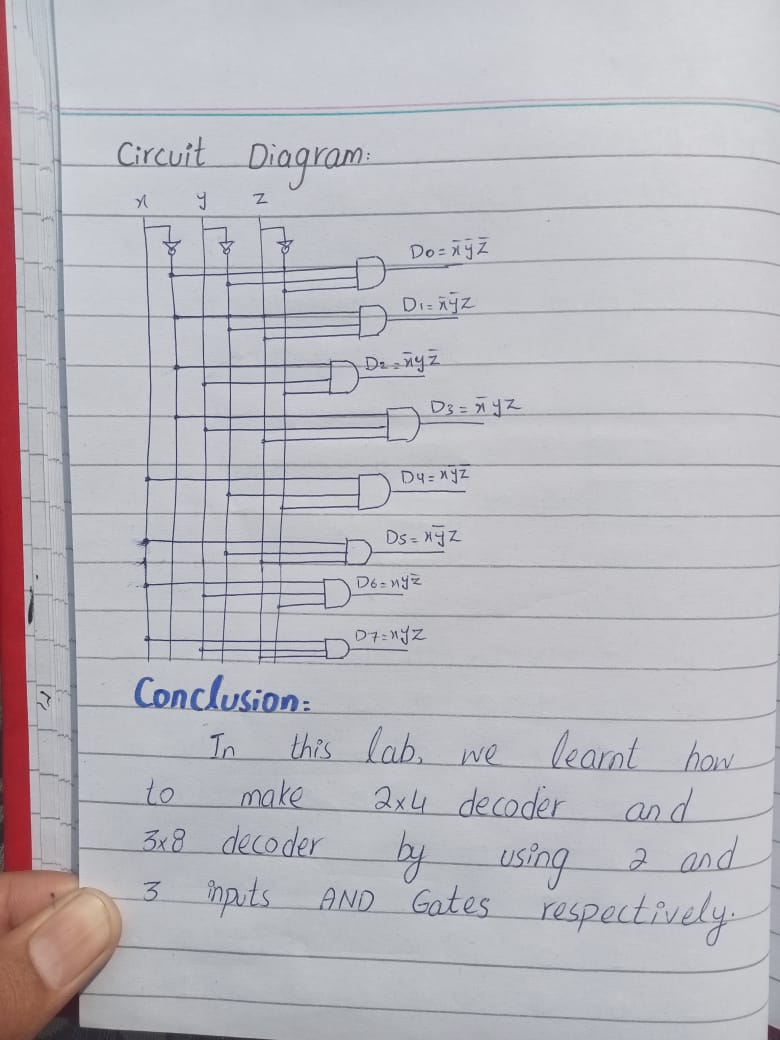 Circuit Diagram:
x y z
D0 = x̄ȳz̄
D1 = x̄ȳz
D2 = x̄yz̄
D3 = x̄yz
D4 = xȳz̄
D5 = xȳz
D6 = xyz̄
D7 = xyz
Conclusion:
In this lab, we learnt how
to make 2x4 decoder and
3x8 decoder by using 2 and
3 inputs AND Gates respectively.